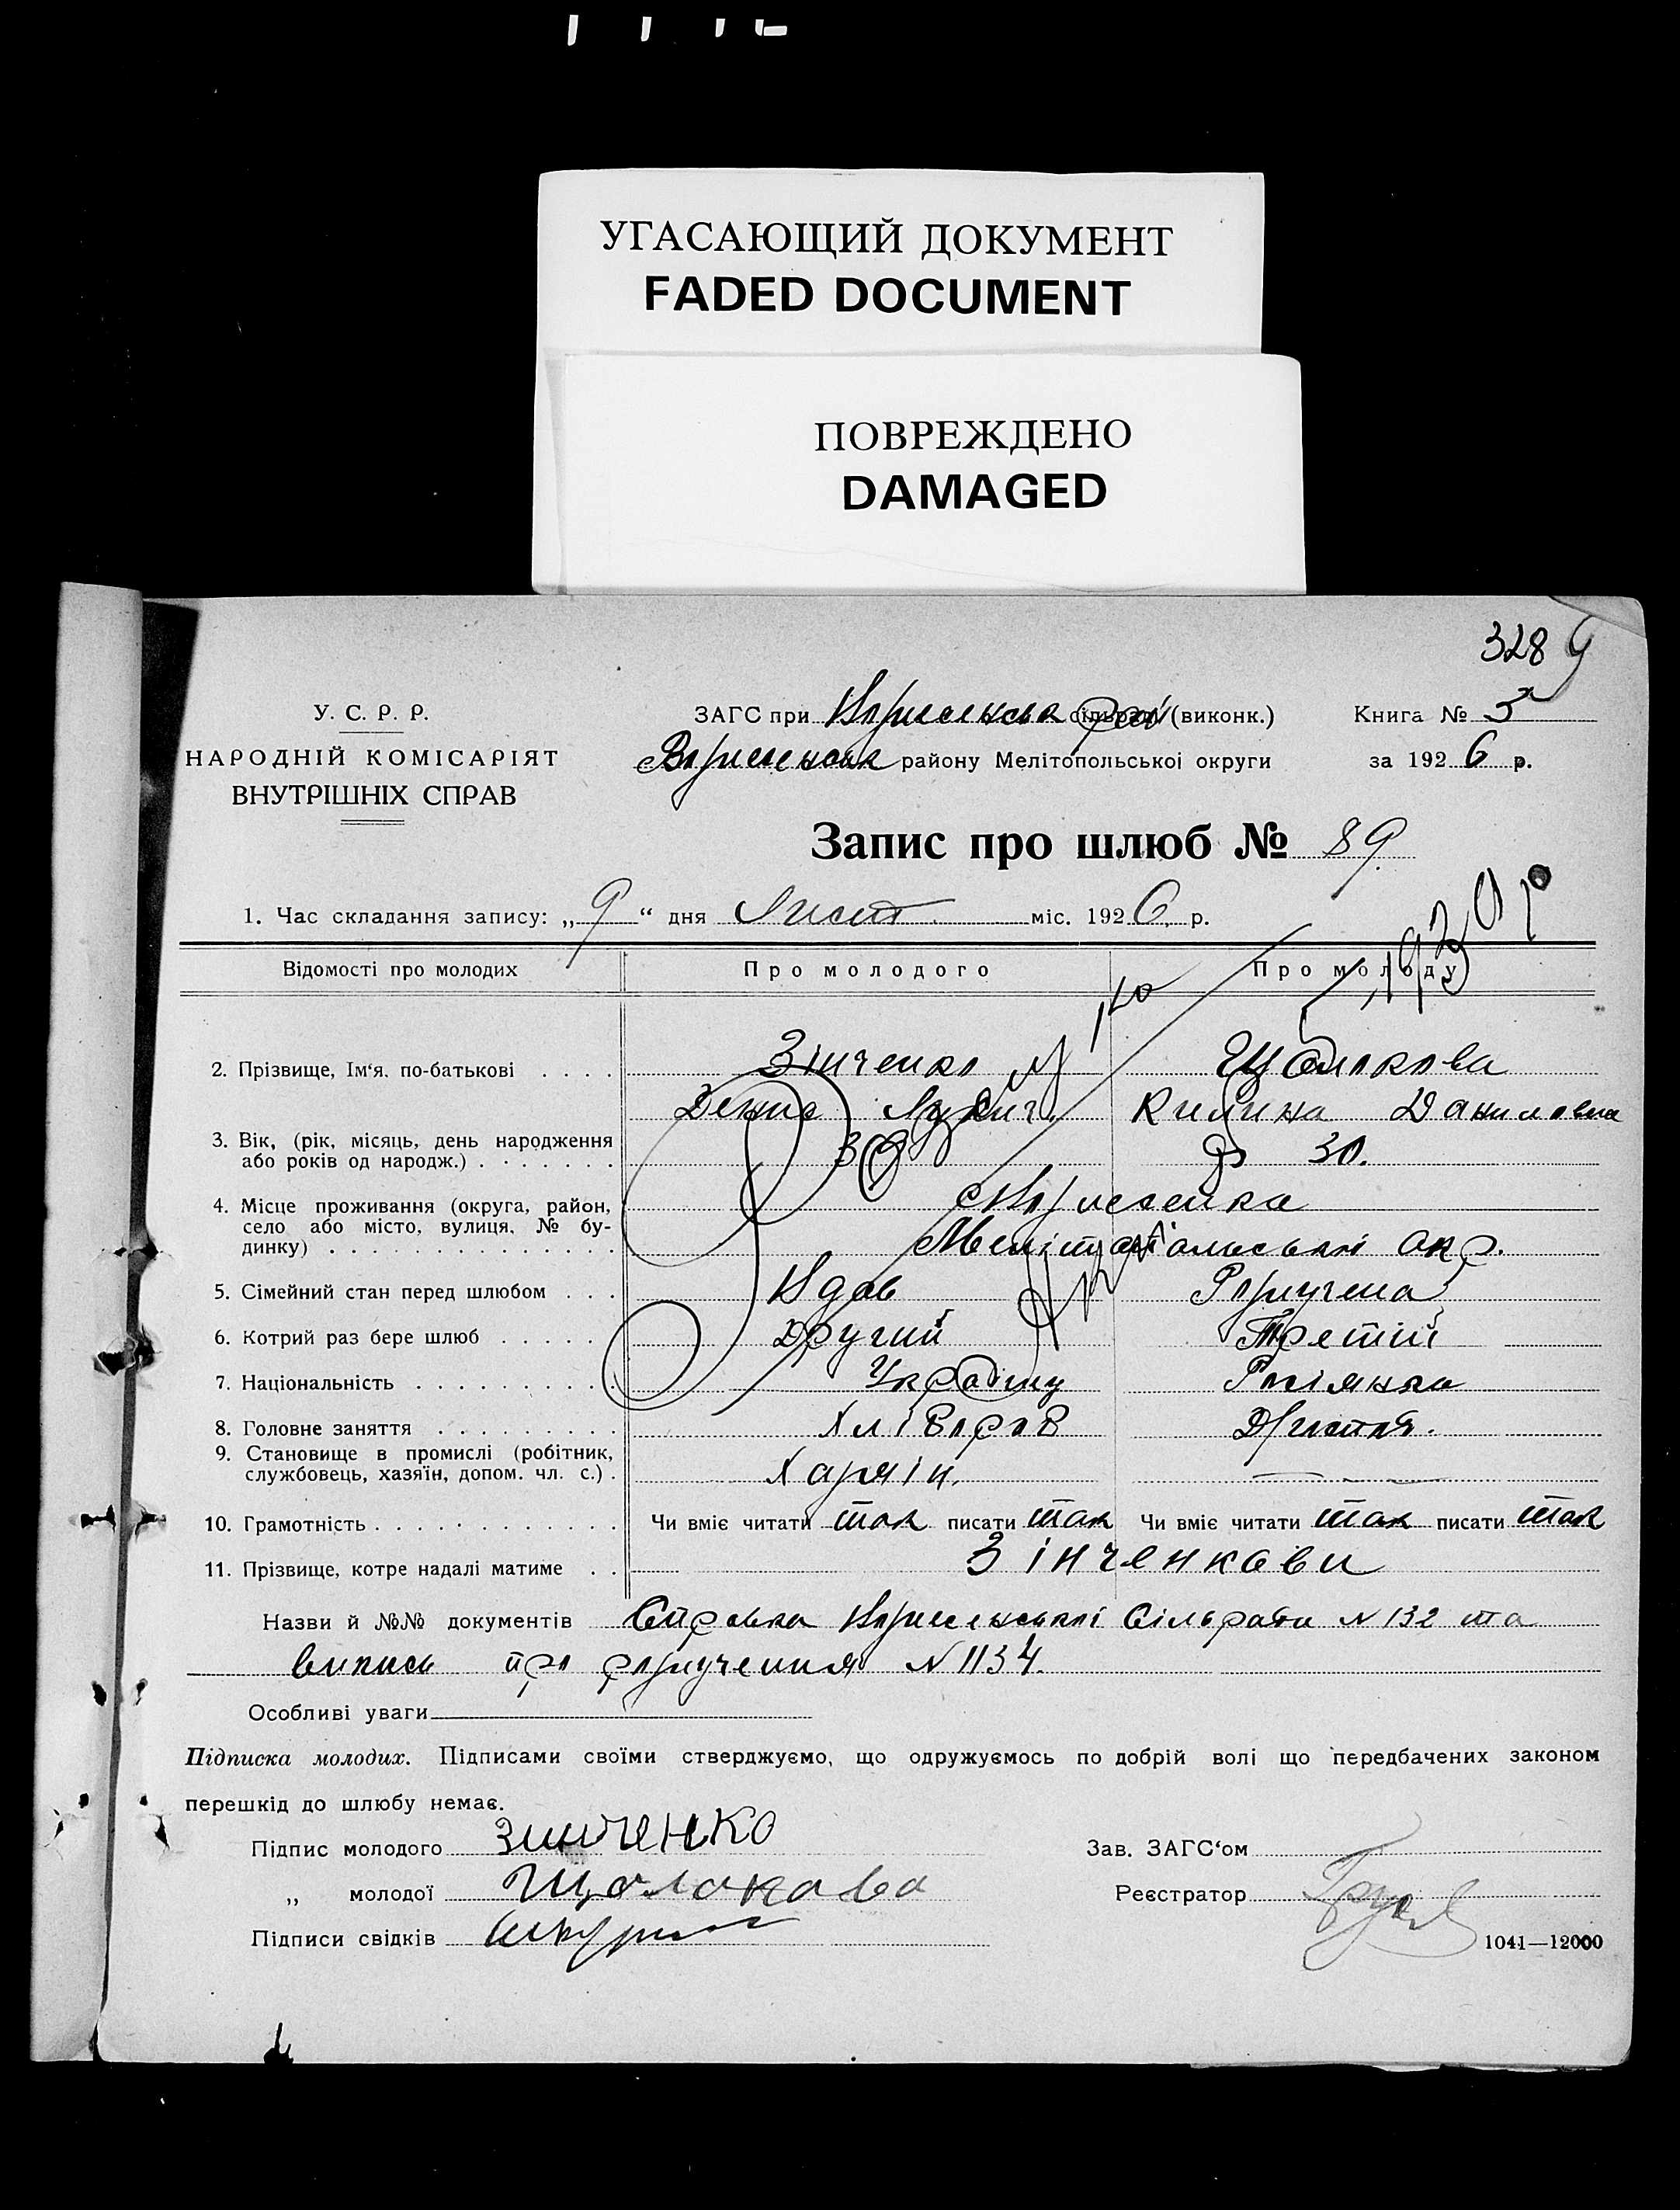 УГАСАЮЩИЙ ДОКУМЕНТ
FADED DOCUMENT
ПОВРЕЖДЕНО
DAMAGED
328
У. С. Р. Р.
НАРОДНІЙ КОМІСАРІЯТ
ВНУТРІШНІХ СПРАВ
ЗАГС при сільради (виконк.)
району Мелітопольської округи
Книга № 5
за 1926 р.
Запис про шлюб № 89.
1. Час складання запису: „9“ дня Лист. міс. 1926 р.
Відомості про молодих Про молодого Про молоду
2. Прізвище, Ім‘я. по-батькові Зінченко Щолокова
Денис Лукич Килина Даниловна
3. Вік, (рік, місяць, день народження
або років од народж.) 30.
4. Місце проживання (округа, район,
село або місто, вулиця, № бу-
динку) Мелітопольської окр.
5. Сімейний стан перед шлюбом Вдов Розлучена
6. Котрий раз бере шлюб Другий Третій
7. Національність Росіянка
8. Головне заняття Хлібороб
9. Становище в промислі (робітник,
службовець, хазяїн, допом. чл. с.)
10. Грамотність Чи вміє читати так писати так Чи вміє читати так писати так
11. Прізвище, котре надалі матиме Зінченкови
Назви й №№ документів Справка Сільради № 132 та
випись про розлучення № 1134.
Особливі уваги
Підписка молодих. Підписами своїми стверджуємо, що одружуємось по добрій волі що передбачених законом
перешкід до шлюбу немає.
Підпис молодого Зинченко
„ молодої Щолокова
Підписи свідків
Зав. ЗАГС‘ом
Реєстратор
1041—12000